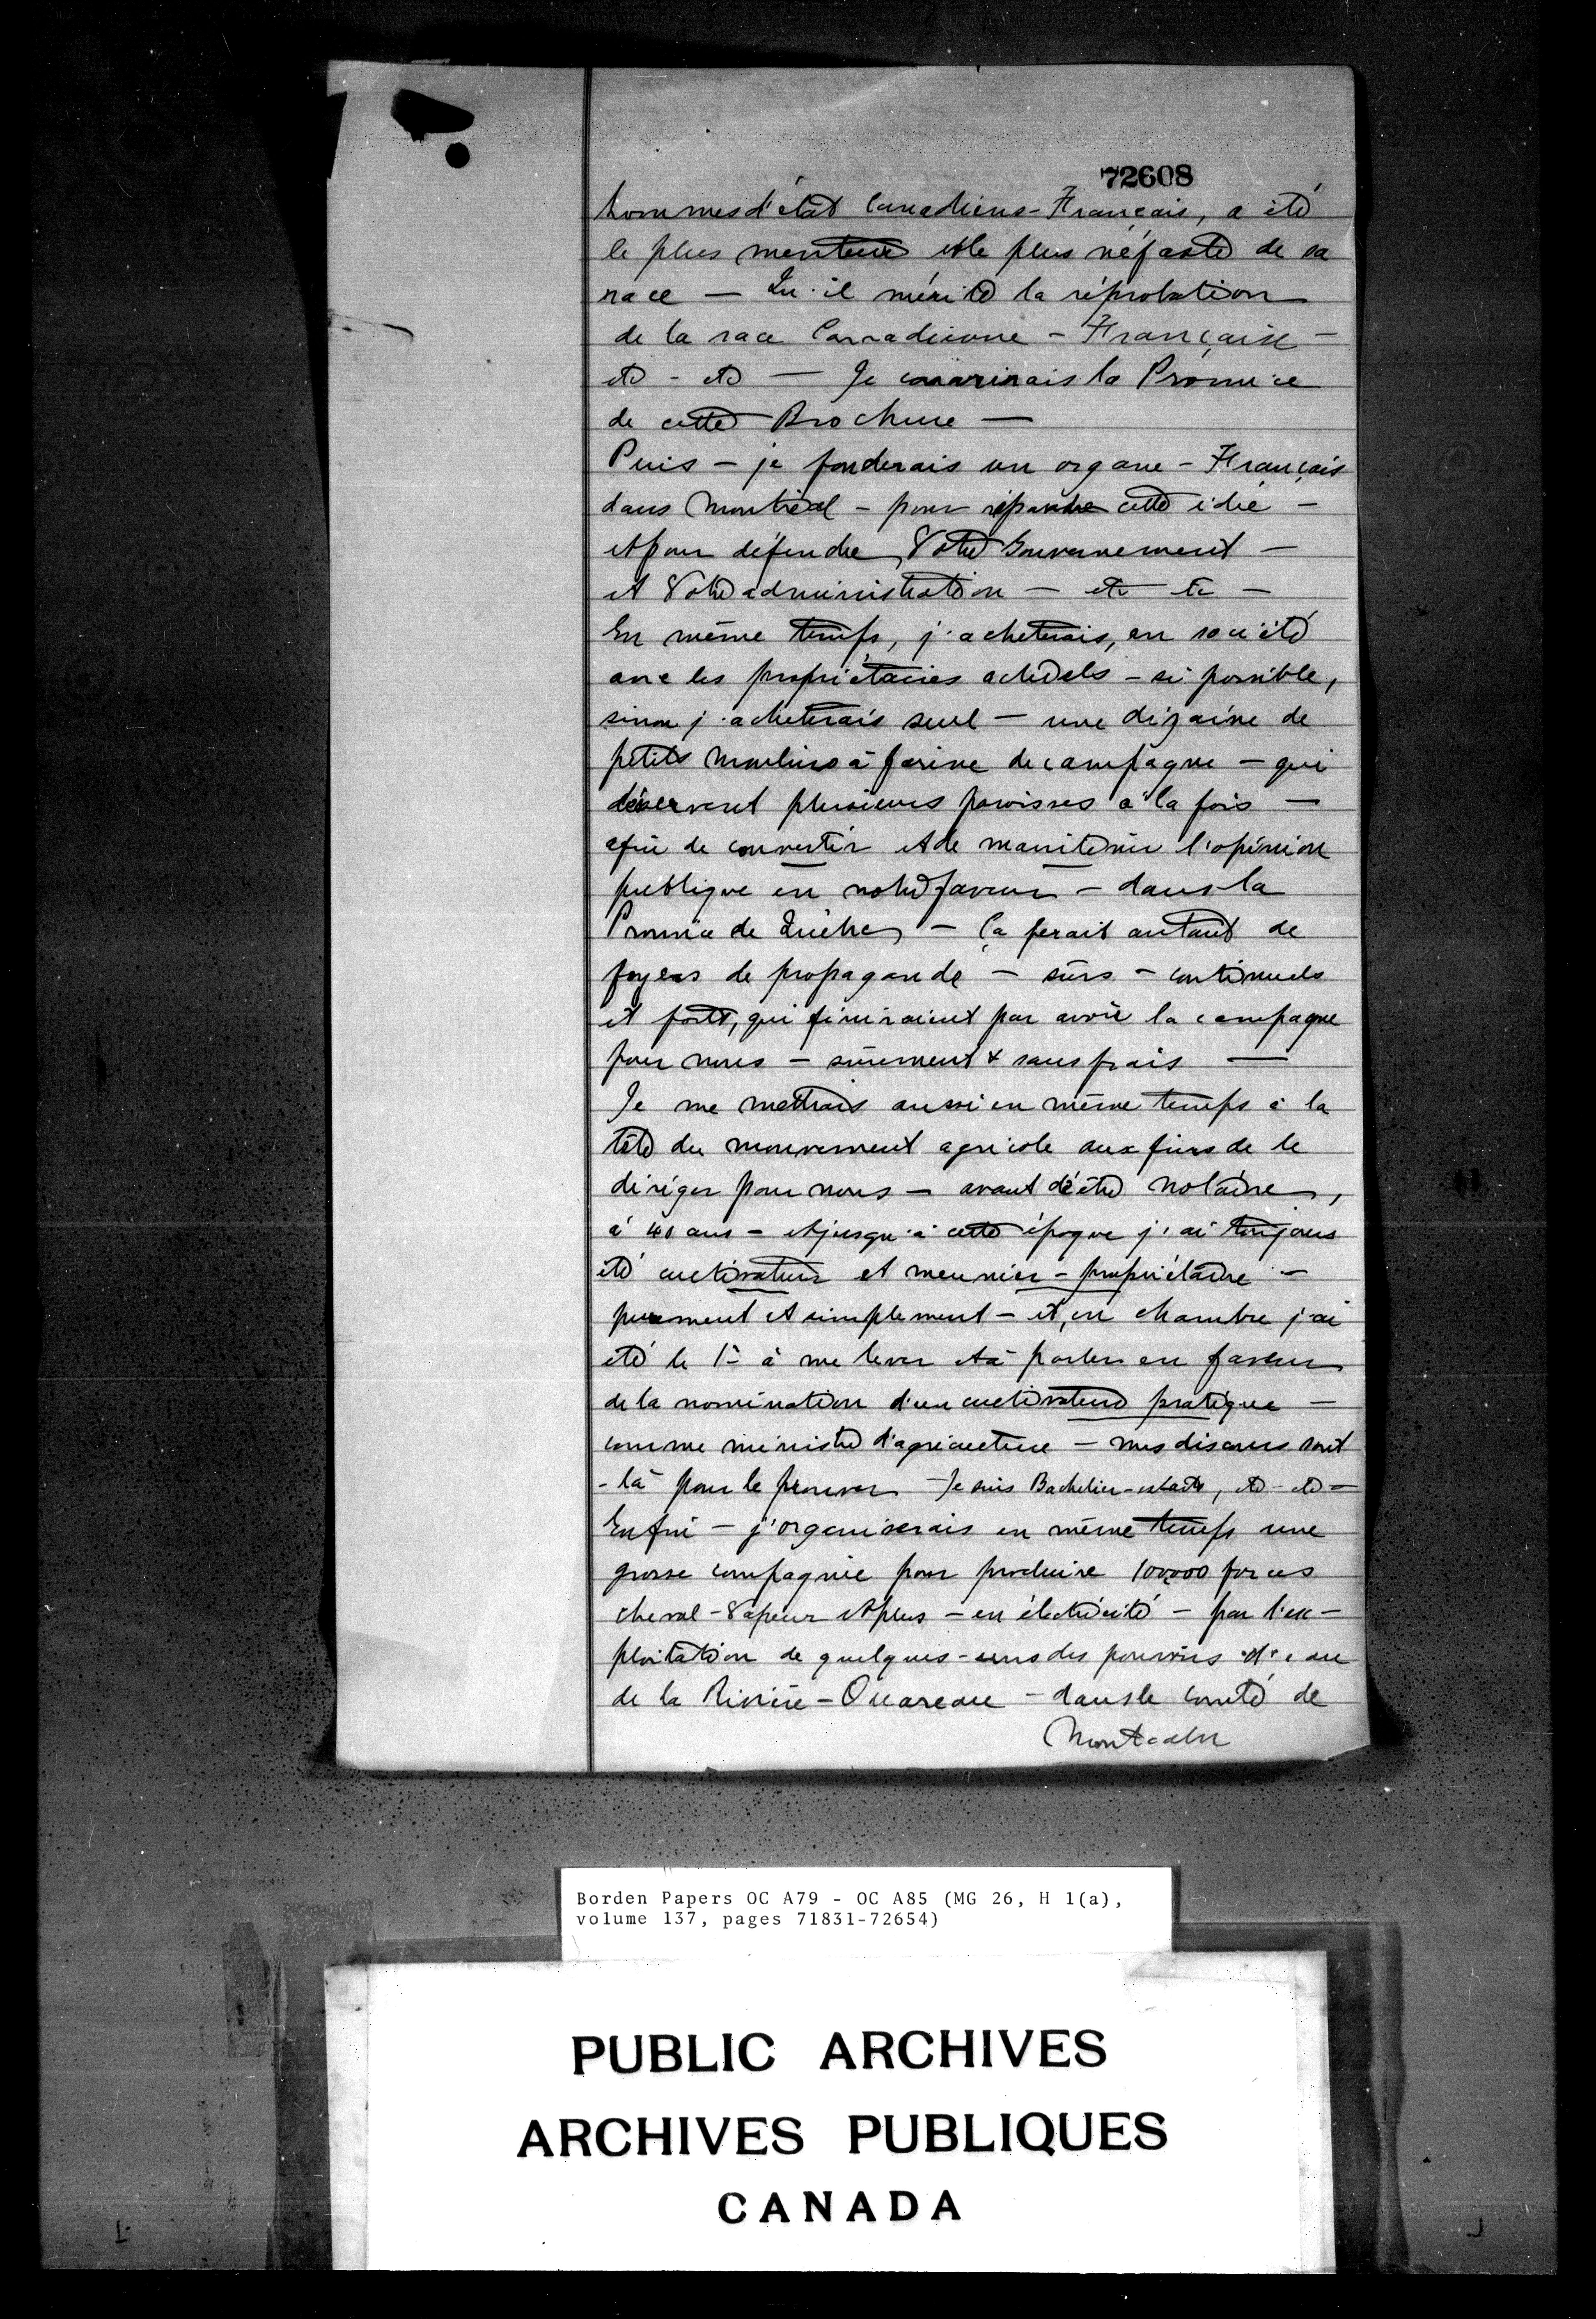 72608
hommes d'état Canadiens-Français, a été
le plus menteur et le plus néfaste de sa
race — Qu'il mérite la réprobation
de la race Canadienne - Française -
etc - etc — Je couvrirais la Province
de cette Brochure —
Puis - je fonderais un organe - Français
dans Montréal - pour répandre cette idée -
et pour défendre, Votre Gouvernement -
et Votre administration - etc etc -
En même temps, j'acheterais, en société
avec les propriétaires actuels - si possible,
sinon j'acheterais seul - une dizaine de
petits moulins à farine de campagne - qui
desservent plusieurs paroisses à la fois -
afin de convertir et de maintenir l'opinion
publique en notre faveur - dans la
Province de Québec - Ça ferait autant de
foyers de propagande - sûrs - continuels
et forts, qui finiraient par avoir la campagne
pour nous - sûrement & sans frais —
Je me mettrais aussi en même temps à la
tête du mouvement agricole aux fins de le
diriger pour nous - avant d'être notaire,
à 40 ans - et jusqu'à cette époque j'ai toujours
été cultivateur et meunier - propriétaire -
purement et simplement - et, en chambre j'ai
été le 1er à me lever et à parler en faveur
de la nomination d'un cultivateur pratique -
comme ministre d'agriculture - mes discours sont
- là pour le prouver - Je suis Bachelier-es-arts, etc - etc -
Enfin - j'organiserais en même temps une
grosse compagnie pour produire 100,000 forces
cheval - Vapeur et plus - en électricité - par l'ex-
ploitation de quelques-uns des pouvoirs d'eau
de la Rivière - Ouareau - dans le comté de
Montcalm
Borden Papers OC A79 - OC A85 (MG 26, H 1(a),
volume 137, pages 71831-72654)
PUBLIC ARCHIVES
ARCHIVES PUBLIQUES
CANADA